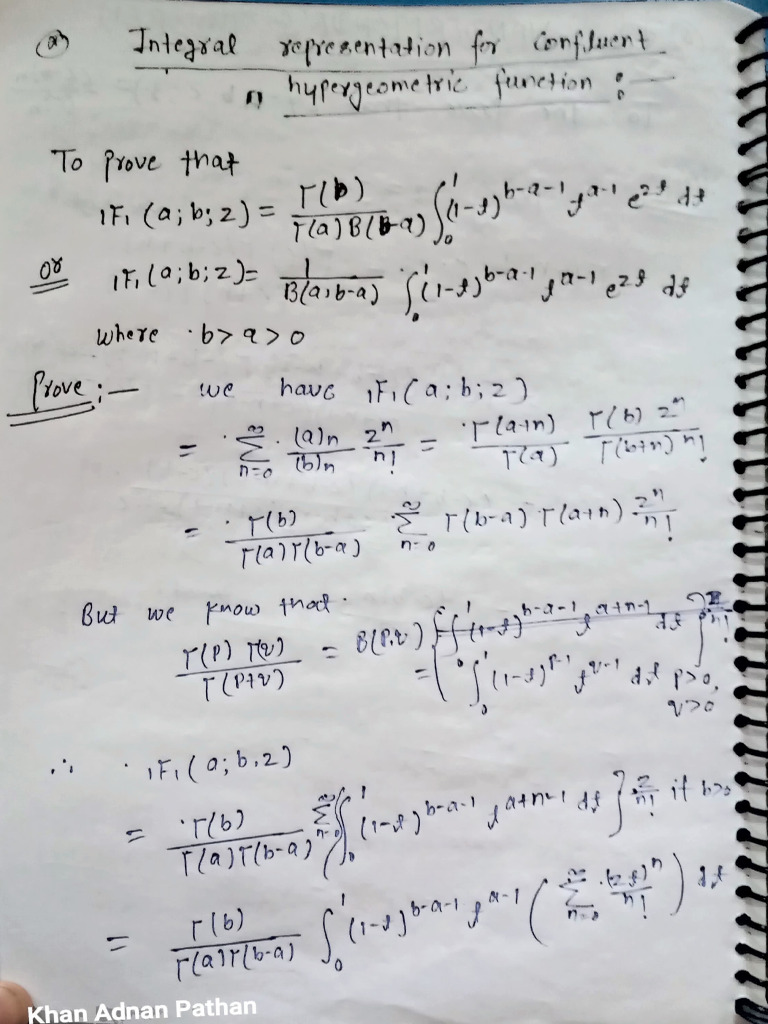 (a) Integral representation for Confluent
hypergeometric function :—
To prove that
₁F₁ (a; b; z) = Γ(b) / Γ(a) B(b-a) ∫₀¹ (1-t)^{b-a-1} t^{a-1} e^{zt} dt
or ₁F₁ (a; b; z) = 1 / B(a, b-a) ∫₀¹ (1-t)^{b-a-1} t^{a-1} e^{zt} dt
where b > a > 0
Prove :— we have ₁F₁ (a; b; z)
= Σ_{n=0}^{∞} (a)n / (b)n z^n / n! = Γ(a+n) / Γ(a) Γ(b) z^n / Γ(b+n) n!
= Γ(b) / Γ(a) Γ(b-a) Σ_{n=0}^{∞} Γ(b-a) Γ(a+n) z^n / n!
But we know that
Γ(p) Γ(q) / Γ(p+q) = B(p,q)
= ∫₀¹ (1-t)^{p-1} t^{q-1} dt p>0,
q>0
∴ ₁F₁ (a; b, z)
= Γ(b) / Γ(a) Γ(b-a) Σ_{n=0}^{∞} { ∫₀¹ (1-t)^{b-a-1} t^{a+n-1} dt } z / n! if b>0
= Γ(b) / Γ(a) Γ(b-a) ∫₀¹ (1-t)^{b-a-1} t^{a-1} ( Σ_{n=0}^{∞} (zt)^n / n! ) dt
Khan Adnan Pathan